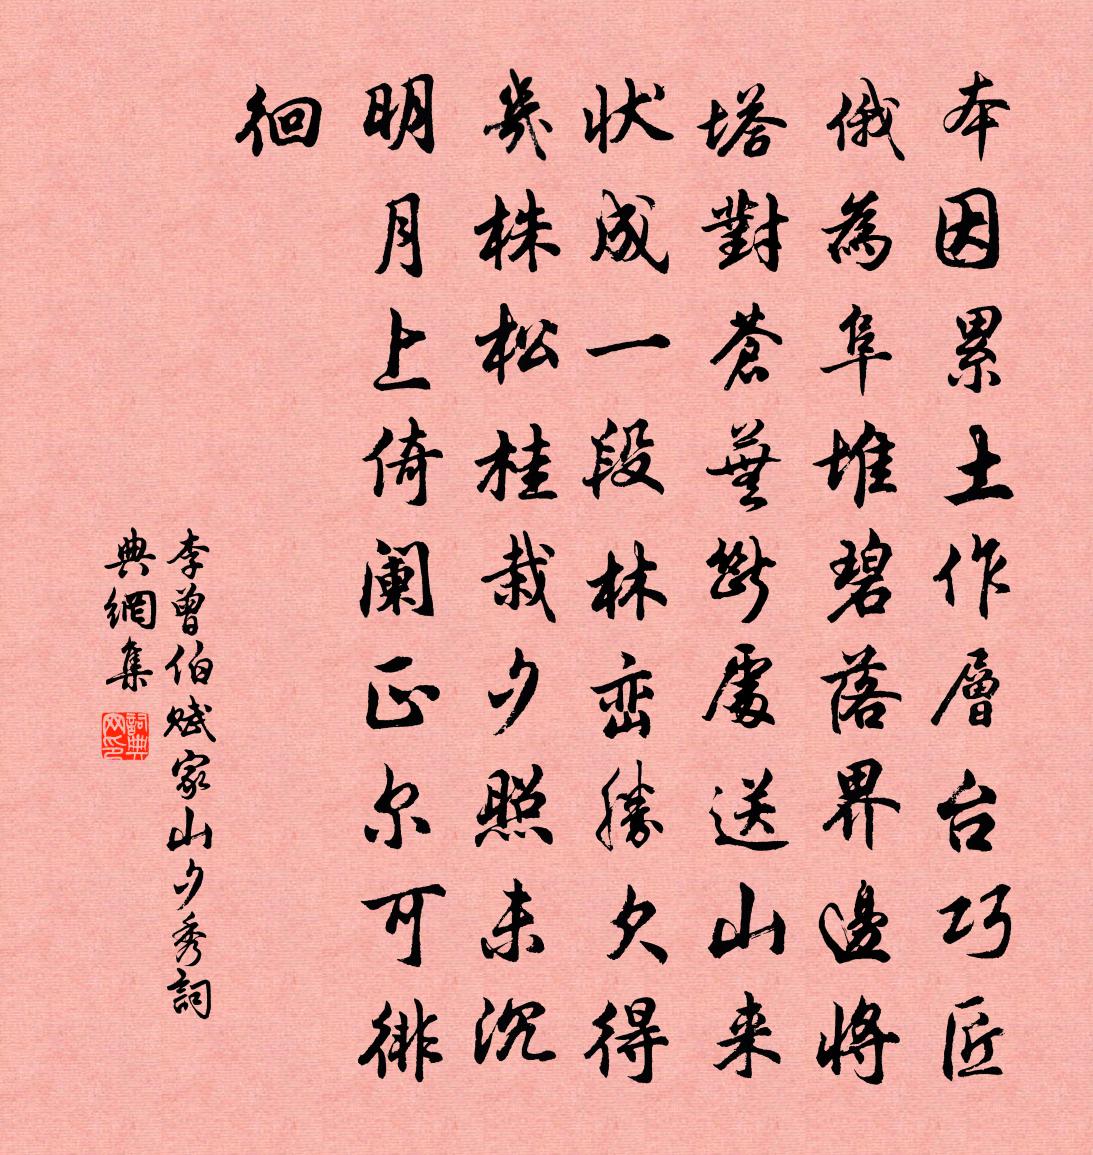 本因累土作層台巧匠
俄為阜堆碧落界邊將
塔對蒼蕪斷處送山来
状成一段林巒勝欠得
幾株松桂栽夕照未沉
明月上倚阑正尔可徘
徊
李曾伯賦家山夕秀詞
典網集
詞典网印